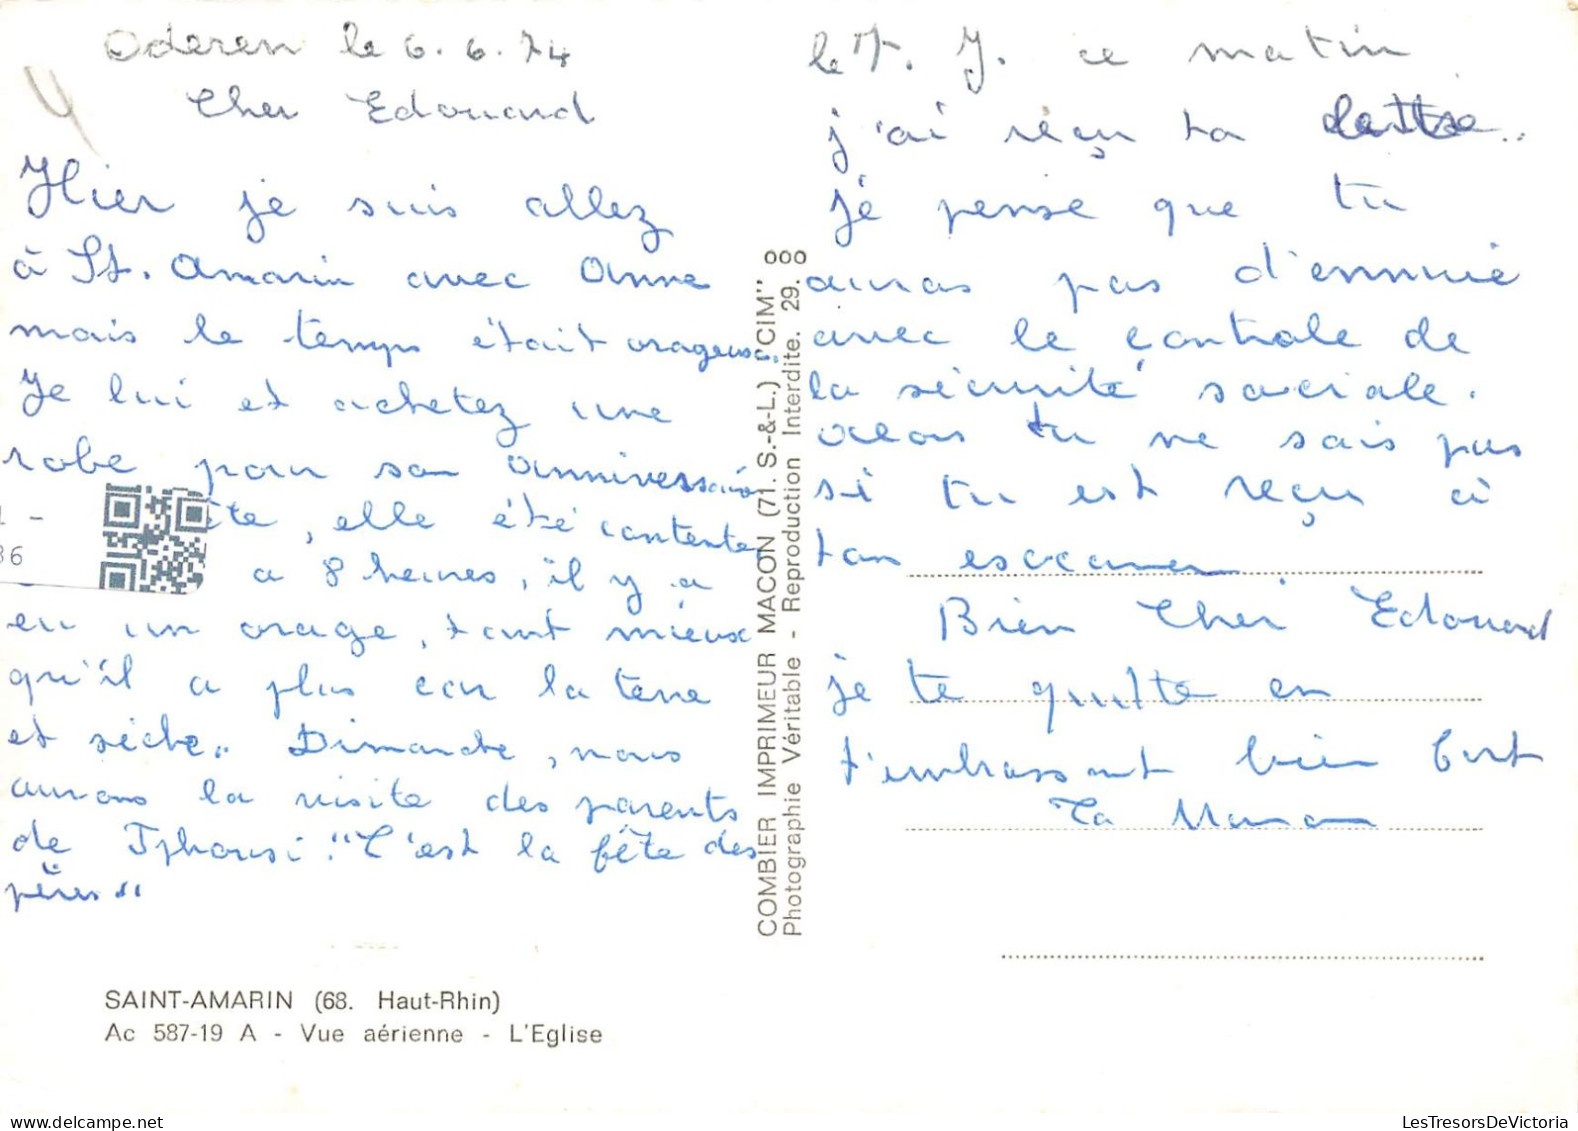 Oderen le 6.6.74
Cher Edouard
Hier je suis allez
à St. Amarin avec Anne
mais le temps était orageux.
Je lui et achetez une
robe pour son anniversair
elle été contente
a 8 heures, il y a
eu un orage, tant mieux
qu'il a plus car la terre
et sèche.. Dimanche, nous
aurons la visite des parents
de "C'est la fête des
pères"
SAINT-AMARIN (68. Haut-Rhin)
Ac 587-19 A - Vue aérienne - L'Eglise
COMBIER IMPRIMEUR MACON (71. S.-&-L.) "CIM"
Photographie Véritable - Reproduction Interdite. 29.
ce matin
j'ai reçu ta lettre..
je pense que tu
auras pas d'ennuie
avec le contrôle de
la sécurité sociale.
alors tu ne sais pas
si tu est reçu à
ton examen
Bien Cher Edouard
je te quitte en
t'embrassant bien fort
Ta Maman
LesTresorsDeVictoria.com